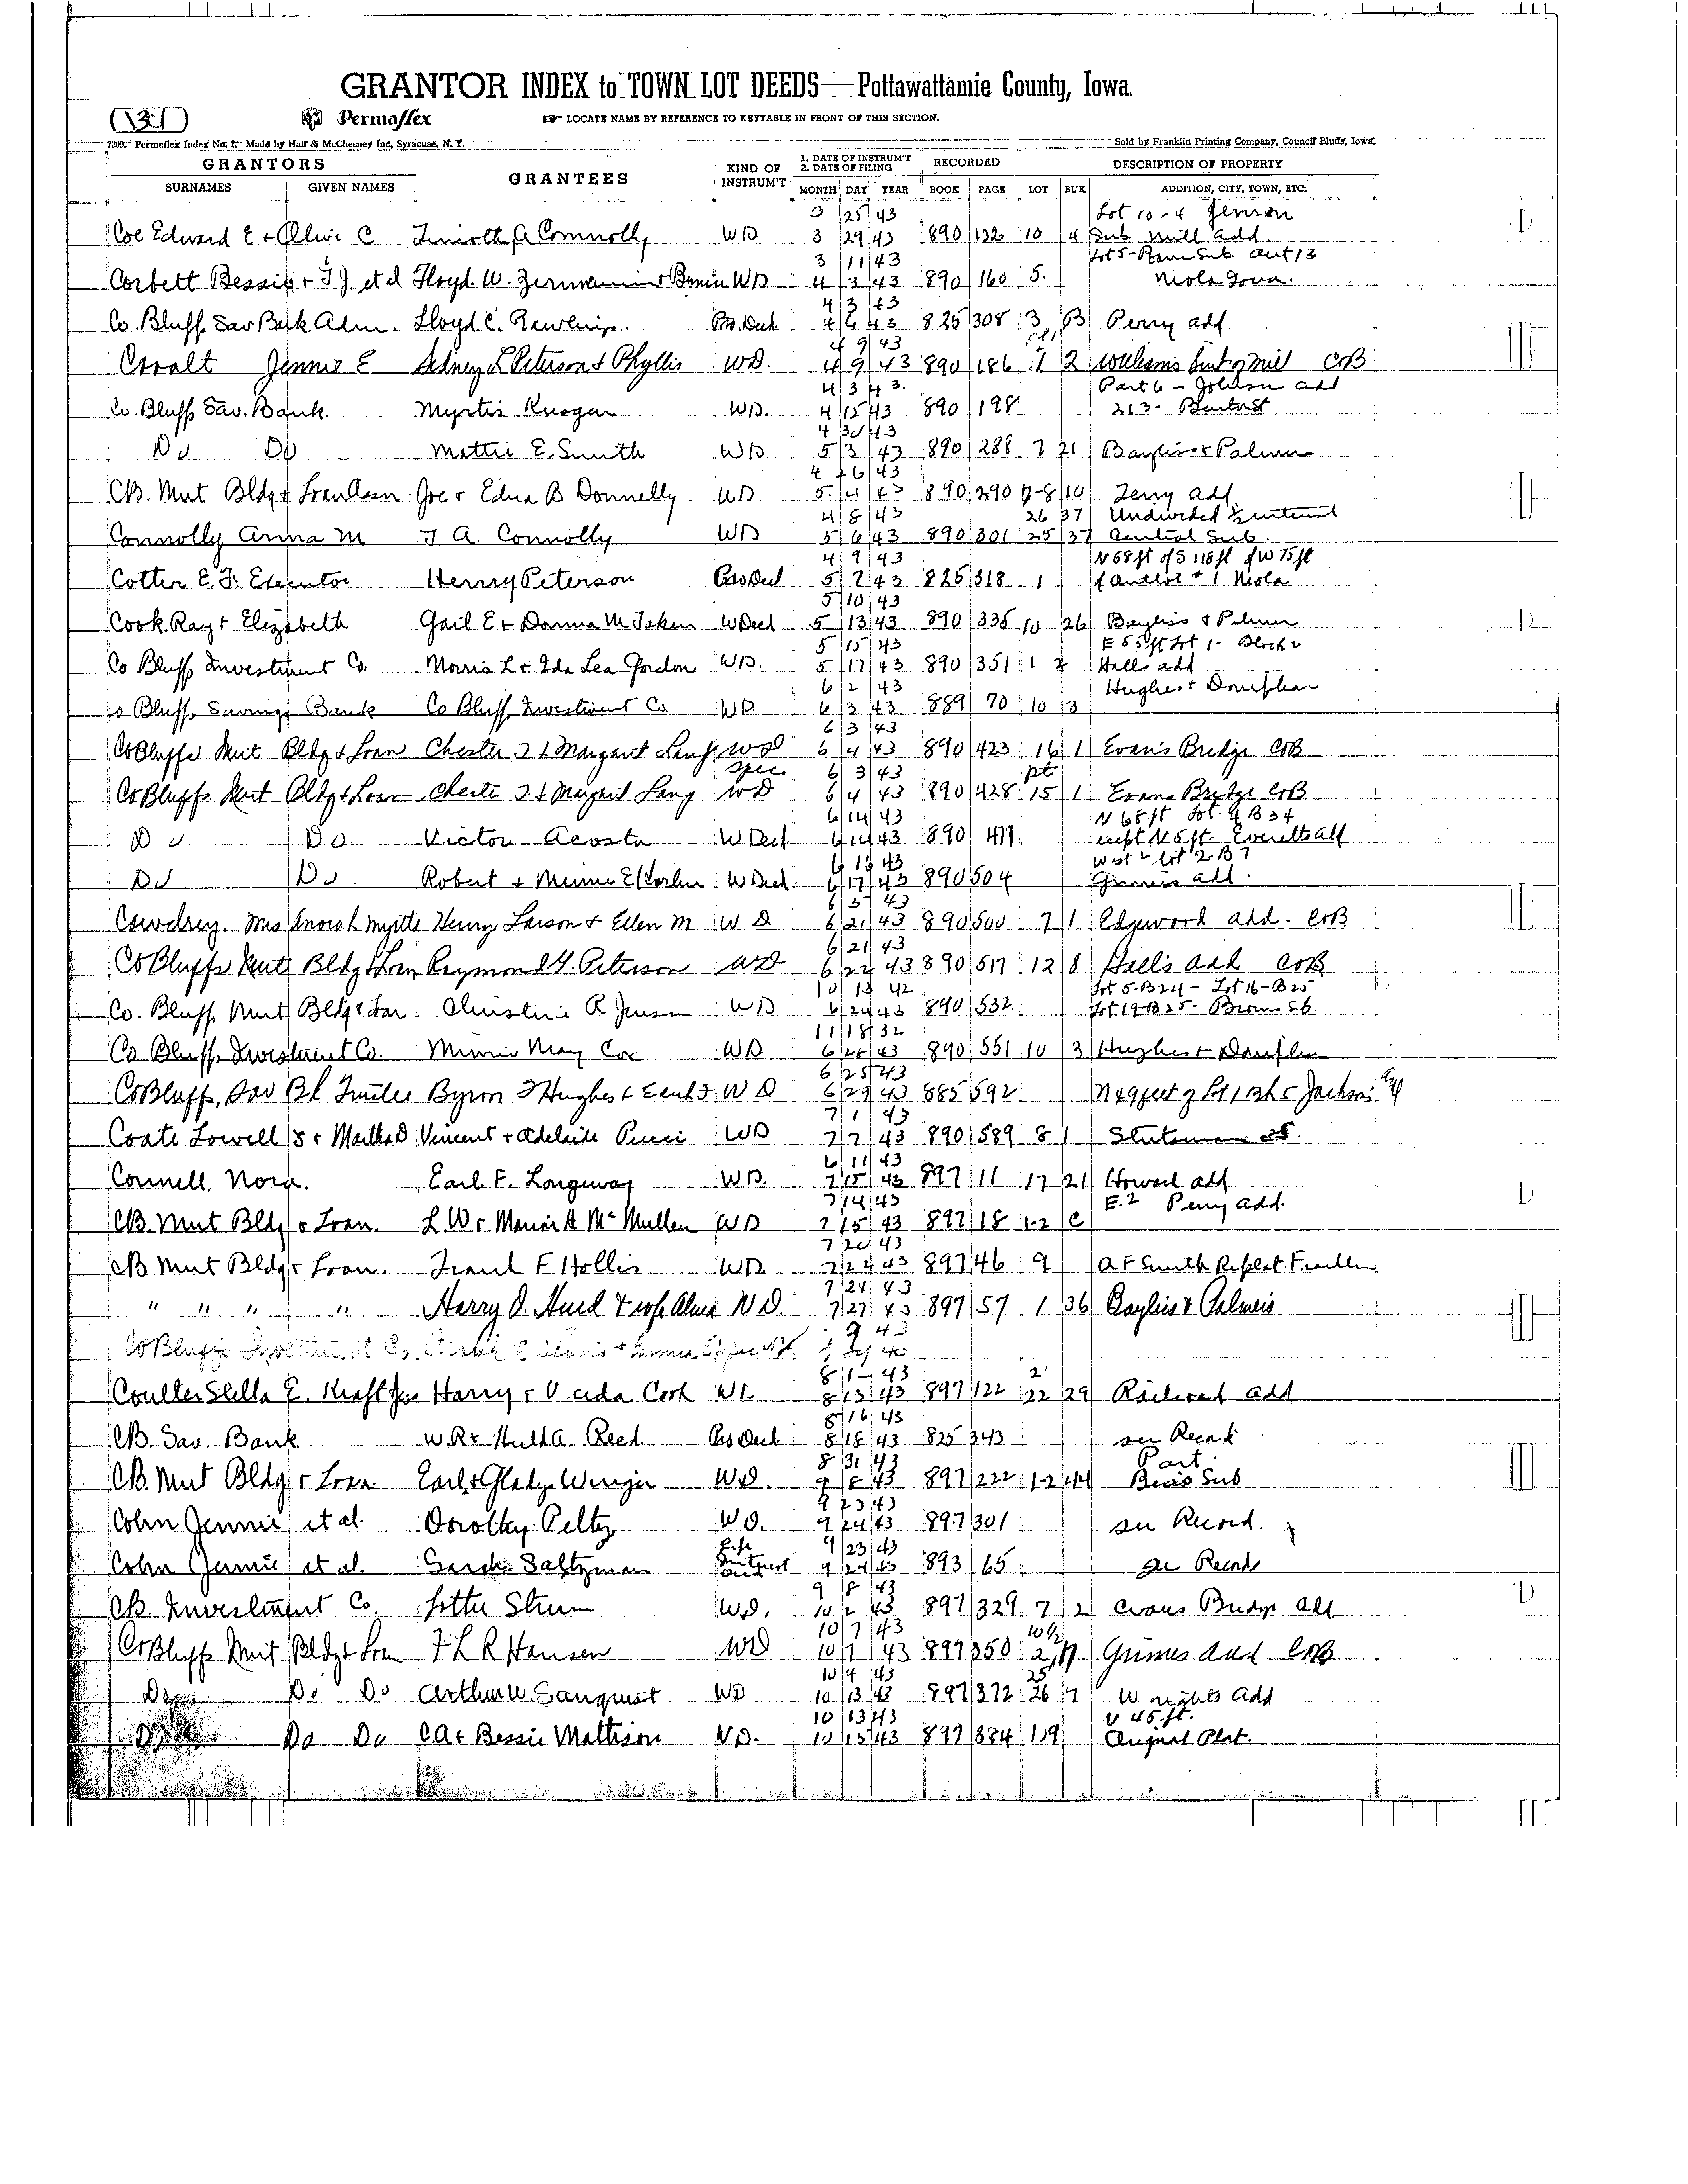 GRANTOR INDEX to TOWN LOT DEEDS—Pottawattamie County, Iowa
(131) Permaflex ☞ LOCATE NAME BY REFERENCE TO KEYTABLE IN FRONT OF THIS SECTION.
7209. Permaflex Index No. 1. Made by Hall & McChesney Inc, Syracuse, N. Y. Sold by Franklin Printing Company, Council Bluffs, Iowa.
GRANTORS GRANTEES KIND OF INSTRUM'T 1. DATE OF INSTRUM'T 2. DATE OF FILING RECORDED DESCRIPTION OF PROPERTY
SURNAMES GIVEN NAMES MONTH DAY YEAR BOOK PAGE LOT BL'K ADDITION, CITY, TOWN, ETC.
3 25 43 Lot 10-4
Coe Edward E + Olive C Timothy A Connolly WD 3 29 43 890 132 10 4 Sub Mill add
3 11 43
Corbett Bessie + T J et al Floyd W. WD 4 3 43 890 160 5 Neola Iowa.
4 3 43
Co. Bluffs Sav Bank Adm. Lloyd C. Rawlings 4 6 43 825 308 3 B Perry add
4 9 43
Jennie E Sidney L Peterson & Phyllis WD. 4 9 43 890 186 2 Williams Sub of Mill COB
4 3 43 Part 6 - Johnson add
Co. Bluffs Sav. Bank Myrtis WD. 4 15 43 890 198 213- Benton St
4 30 43
Do Do Mattie E. Smith WD 5 3 43 890 288 7 21 Bayliss + Palmer
4 43
CB. Mut Bldg + Loan Assn Joe + Edna B Donnelly WD 5 4 43 890 290 7-8 10 Terry add
4 8 43 26 37 Undivided ½ interest
Connolly Anna M T A. Connolly WD 5 6 43 890 301 25 37 Central Sub.
4 9 43 N 68 ft of S 118 ft of W 75 ft
Cotter E. J. Executor Henry Peterson 5 7 43 825 318 1 Neola
5 10 43
Cook Ray + Elizabeth Gail E + Donna M W Deed 5 13 43 890 336 10 26 Bayliss & Palmer
5 15 43 E 55 ft Lot 1- Block 2
Co Bluffs Investment Co. Morris L + Ida Lea Gordon WD. 5 17 43 890 351 1 2 Halls add
6 2 43 Hughes + Doniphan
Bluffs Savings Bank Co Bluffs Investment Co WD 6 3 43 889 70 10 3
6 3 43
Co Bluffs Mut Bldg + Loan Chester J & Margaret Lang WD 6 4 43 890 423 16 1 Evans Bridge COB
Spec 6 3 43 pt
Co Bluffs Mut Bldg + Loan Chester J & Margaret Lang WD 6 4 43 890 428 15 1 Evans Bridge COB
6 14 43 N 68 ft Lot 4 B 34
Do Do Victor Acosta W Deed 6 14 43 890 except N 5 ft Everetts add
43 Lot 2 B 7
Do Do Robert + W Deed 6 17 43 890 504 Grimes add.
6 5 43
Cowdrey. Mrs Myrtle Henry Larson & Ellen M W D 6 21 43 890 500 7 1 Edgewood add - COB
6 21 43
Co Bluffs Mut Bldg + Loan Raymond Peterson WD 6 22 43 890 517 12 8 Hall's add COB
10 13 42 Lot 5-B24 - Lot 16-B25
Co. Bluffs Mut Bldg + Loan R Jensen WD 6 24 43 890 532 Lot 19-B25- Brown Sub
11 18 32
Co Bluffs Investment Co. Minnie May Cox WD 6 28 43 890 551 10 3 Hughes + Doniphan
6 25 43
Co Bluffs Sav Bk Trustee Byron Hughes W D 6 29 43 885 592 N 49 feet of Lt 1 Blk 5 Jackson's
7 1 43
Coate Lowell S + Martha D Vincent + Adelaide Pucci WD 7 7 43 890 589 8 1 Stutsman
6 11 43
Connell, Nora. Earl F. Longeway WD. 7 15 43 897 11 17 21 Howard add
7 14 43 E.2 Perry add.
CB. Mut Bldg + Loan. L W + A McMullen WD 7 15 43 897 18 1-2 C
7 20 43
CB Mut Bldg + Loan. Frank F Hollis WD 7 22 43 897 46 9 A F Smith Replat
7 24 43
" " " " Harry O. Hurd & wife Alma W D. 7 27 43 897 57 1 36 Bayliss & Palmers
Co Bluffs
8 43
Coulter Stella E. Harry + Cook 8 13 43 897 122 22 29 Railroad add
8 16 43
CB. Sav. Bank W.R + Hulda Reed 8 18 43 825 343 see Record
8 31 43 Part
CB Mut Bldg + Loan Earl + Gladys WD. 9 8 43 897 222 1-2 44 Sub
9 23 43
Cohn Jennie et al. Dorothy Peltz WD. 9 24 43 897 301 see Record.
9 23 43
Cohn Jennie et al. Saltzman 9 24 43 893 65 see Record
9 8 43
CB. Investment Co. WD. 10 2 43 897 329 7 2 Evans Bridge add
10 7 43 W½
Co Bluffs Mut Bldg + Loan Hansen WD 10 7 43 897 350 2 Grimes add COB
10 4 43 25
Do Do Arthur W. WD 10 13 43 897 372 26 7 Wrights Add
10 13 43 45 ft.
Do Do C A + Bessie Mattison WD. 10 15 43 897 384 Original Plat.